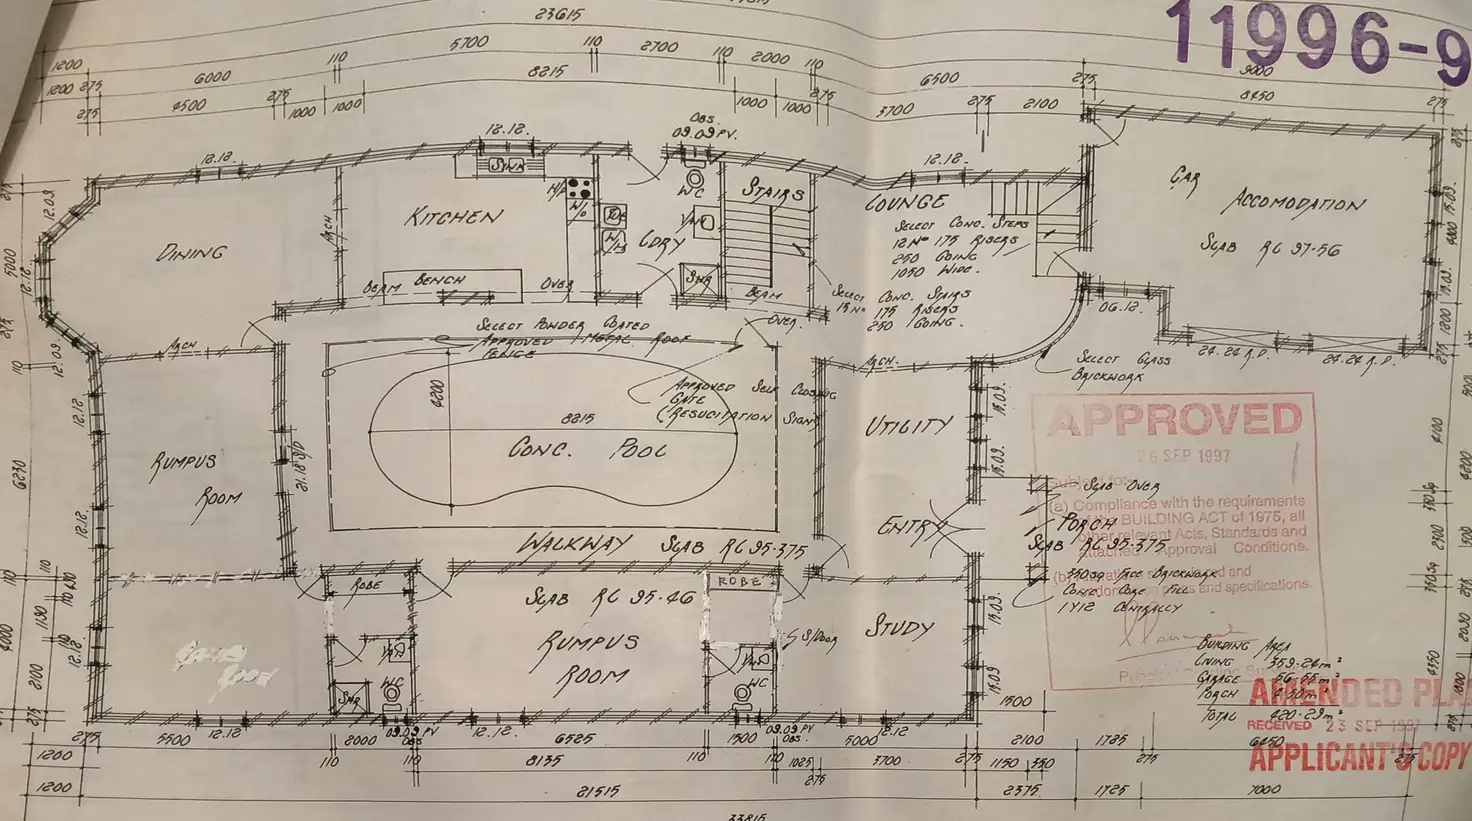 11996-9
23615
5700
110
2700
110
2000
110
1200
6000
8215
6500
275
9000
1200
275
4500
275
1000
1000
1000
1000
275
3700
275
2100
8450
275
OBS.
09.09 PV.
12.12.
12.12.
12.12.
SINK
H/P
W/O
WC
STAIRS
LOUNGE
CAR
ACCOMODATION
SLAB RL 97-56
KITCHEN
DINING
ARCH
LDRY
SELECT CONC. STEPS
12 No 175 RISERS
250 GOING
1050 WIDE.
SHR
BEAM
BENCH
OVER
BEAM
OVER.
SELECT CONC. STAIRS
15 No 175 RISERS
250 GOING.
06.12.
24.24 R.D.
24.24 R.D.
SELECT POWDER COATED
APPROVED METAL ROOF
FENCE
ARCH
ARCH.
SELECT GLASS
BRICKWORK
12.09.
12.12.
12.09.
5000
4200
8215
CONC. POOL
APPROVED SELF CLOSING
GATE
(RESUCITATION SIGN)
UTILITY
15.09.
15.09.
RUMPUS
ROOM
21.18 S/D
12.12
12.12
6270
APPROVED
26 SEP 1997
Subject to:-
(a) Compliance with the requirements
of the BUILDING ACT of 1975, all
other relevant Acts, Standards and
Attached Approval Conditions.
SLAB OVER
ENTRY
PORCH
SLAB RL 95-375
WALKWAY SLAB RL 95-375
350 SQ FACE BRICKWORK
CONC. CORE FILL
1 Y12 CENTRALLY
plans and specifications.
ROBE
ROBE
SLAB RL 95-46
RUMPUS
ROOM
S/DOOR
STUDY
15.09
15.09
VAN
WC
SHR
VAN
WC
4000
1190
2100
12.12.
BUILDING AREA
LIVING 359-24m²
GARAGE 56-55m²
PORCH
TOTAL 420-29m²
AMENDED PLA
RECEIVED 23 SEP 1997
APPLICANT'S COPY
275
5500
12.12
2000
09.09 PV
OBS
12.12.
6525
1500
09.09 PV
OBS.
5000
12.12
1500
2100
1725
6450
1200
110
110
8135
110
110
1025
275
3700
275
1150
350
275
275
1200
21515
2375
1725
7000
33815